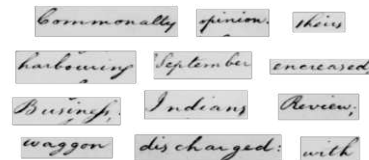 Commonalty opinion. theirs
harbouring September encreased,
Business, Indians Review,
waggon discharged: with